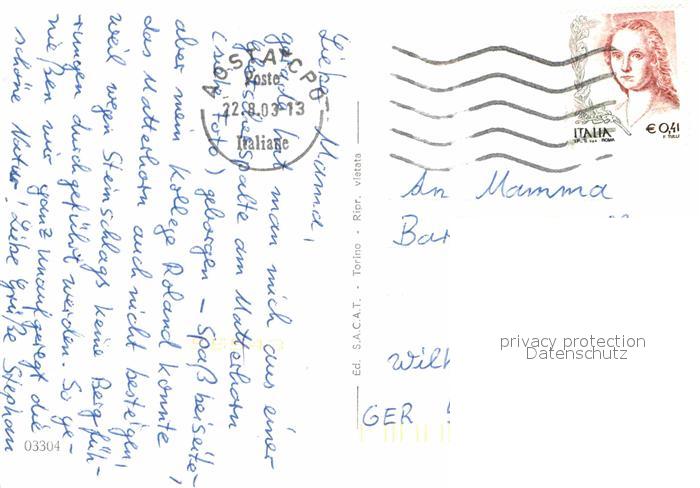 Liebe Mamma,
gerade hat man mich aus einer
Gletscherspalte am Matterhorn
(siehe Foto) geborgen – Spaß beiseite,
aber mein Kollege Roland konnte
das Matterhorn auch nicht besteigen,
weil wegen Steinschlags keine Bergfüh-
rungen durchgeführt werden. So ge-
nießen wir ganz unaufgeregt die
schöne Natur! Liebe Grüße Stephan
03304
AOSTA CPO
Poste
22.8.03-13
Italiane
Ed. S.A.C.A.T. - Torino - Ripr. vietata
ITALIA
€ 0,41
I.P.Z.S. S.p.A. ROMA
F. TULLI
An Mamma
Bar
Wilh
GER
privacy protection
Datenschutz